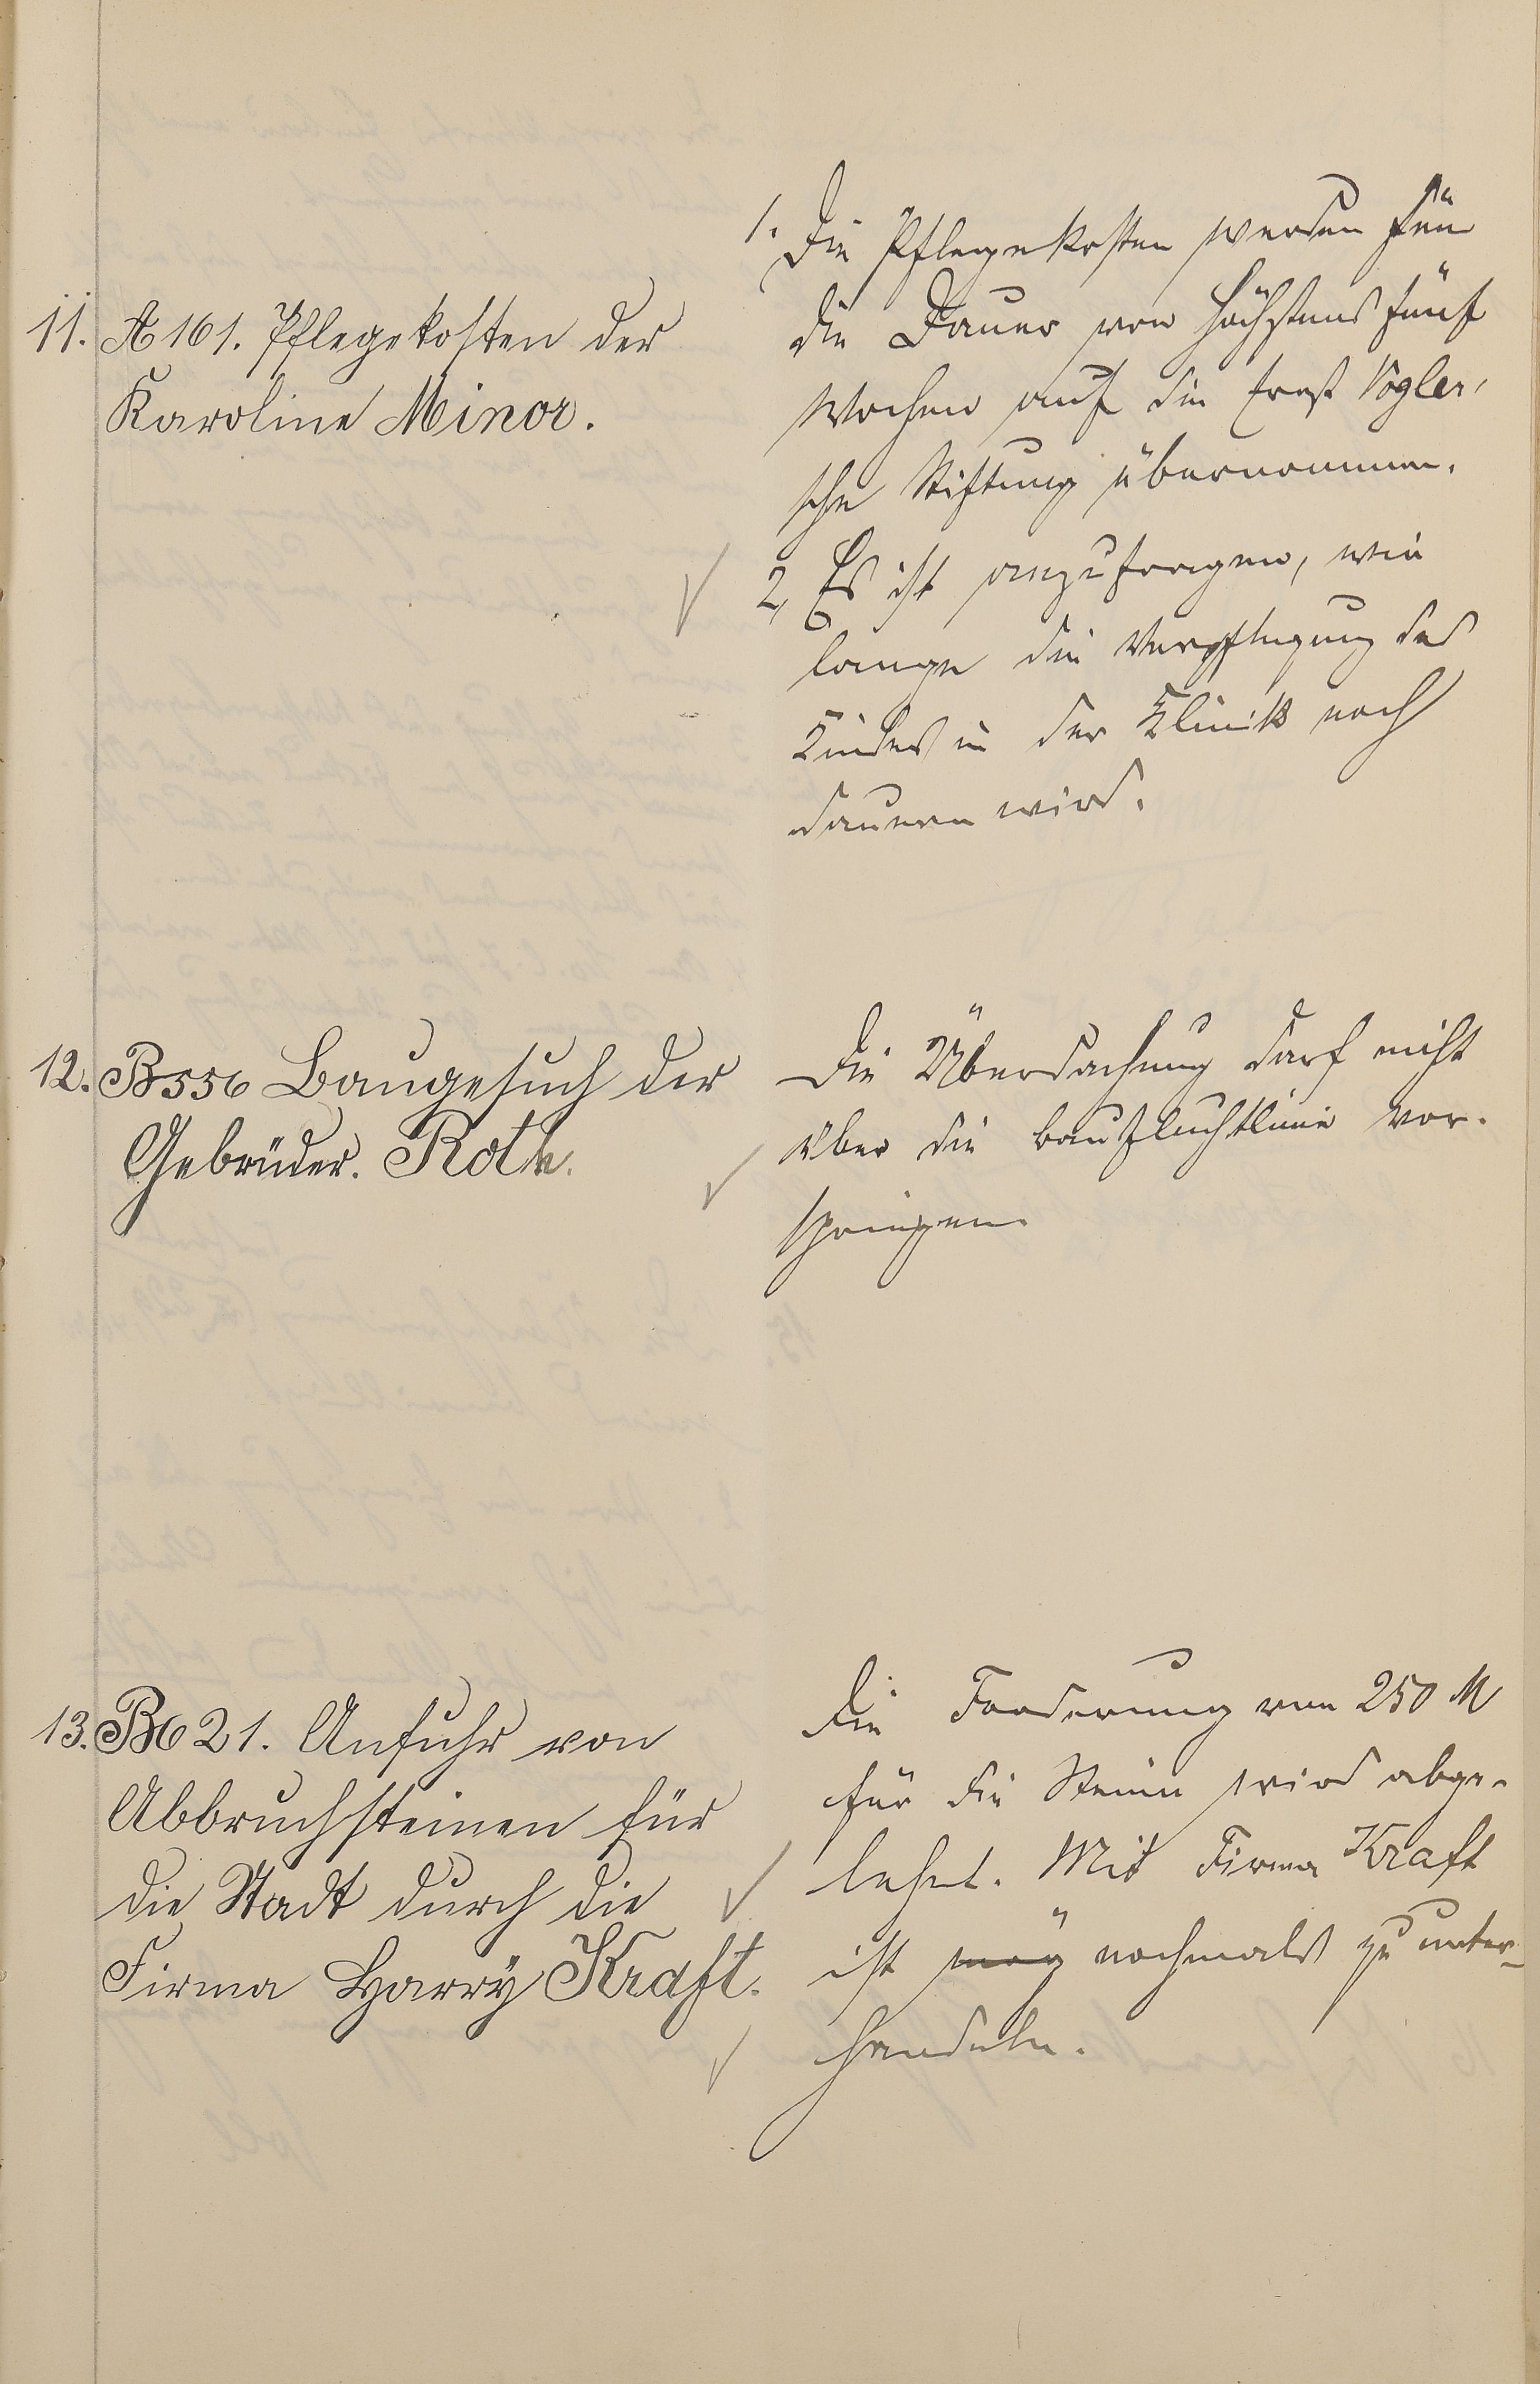 11. A 161. Pflegekosten der
Karoline Minor.
1. Die Pflegekosten werden für
die Dauer von höchstens fünf
Wochen auf die Ernst Vogler'
sche Stiftung übernommen.
2, Es ist anzufragen, wie
lange die Verpflegung des
Kindes in der Klinik noch
dauern wird.
12. B 556 Baugesuch der
Gebrüder. Roth.
Die Überdachung darf nicht
über die Baufluchtlinie vor-
springen.
13. B 621. Anfuhr von
Abbruchsteinen für
die Stadt durch die
Firma Harry Kraft.
Die Forderung von 250 M
für die Steine wird abge-
lehnt. Mit Firma Kraft
ist nochmals zu unter-
handeln.